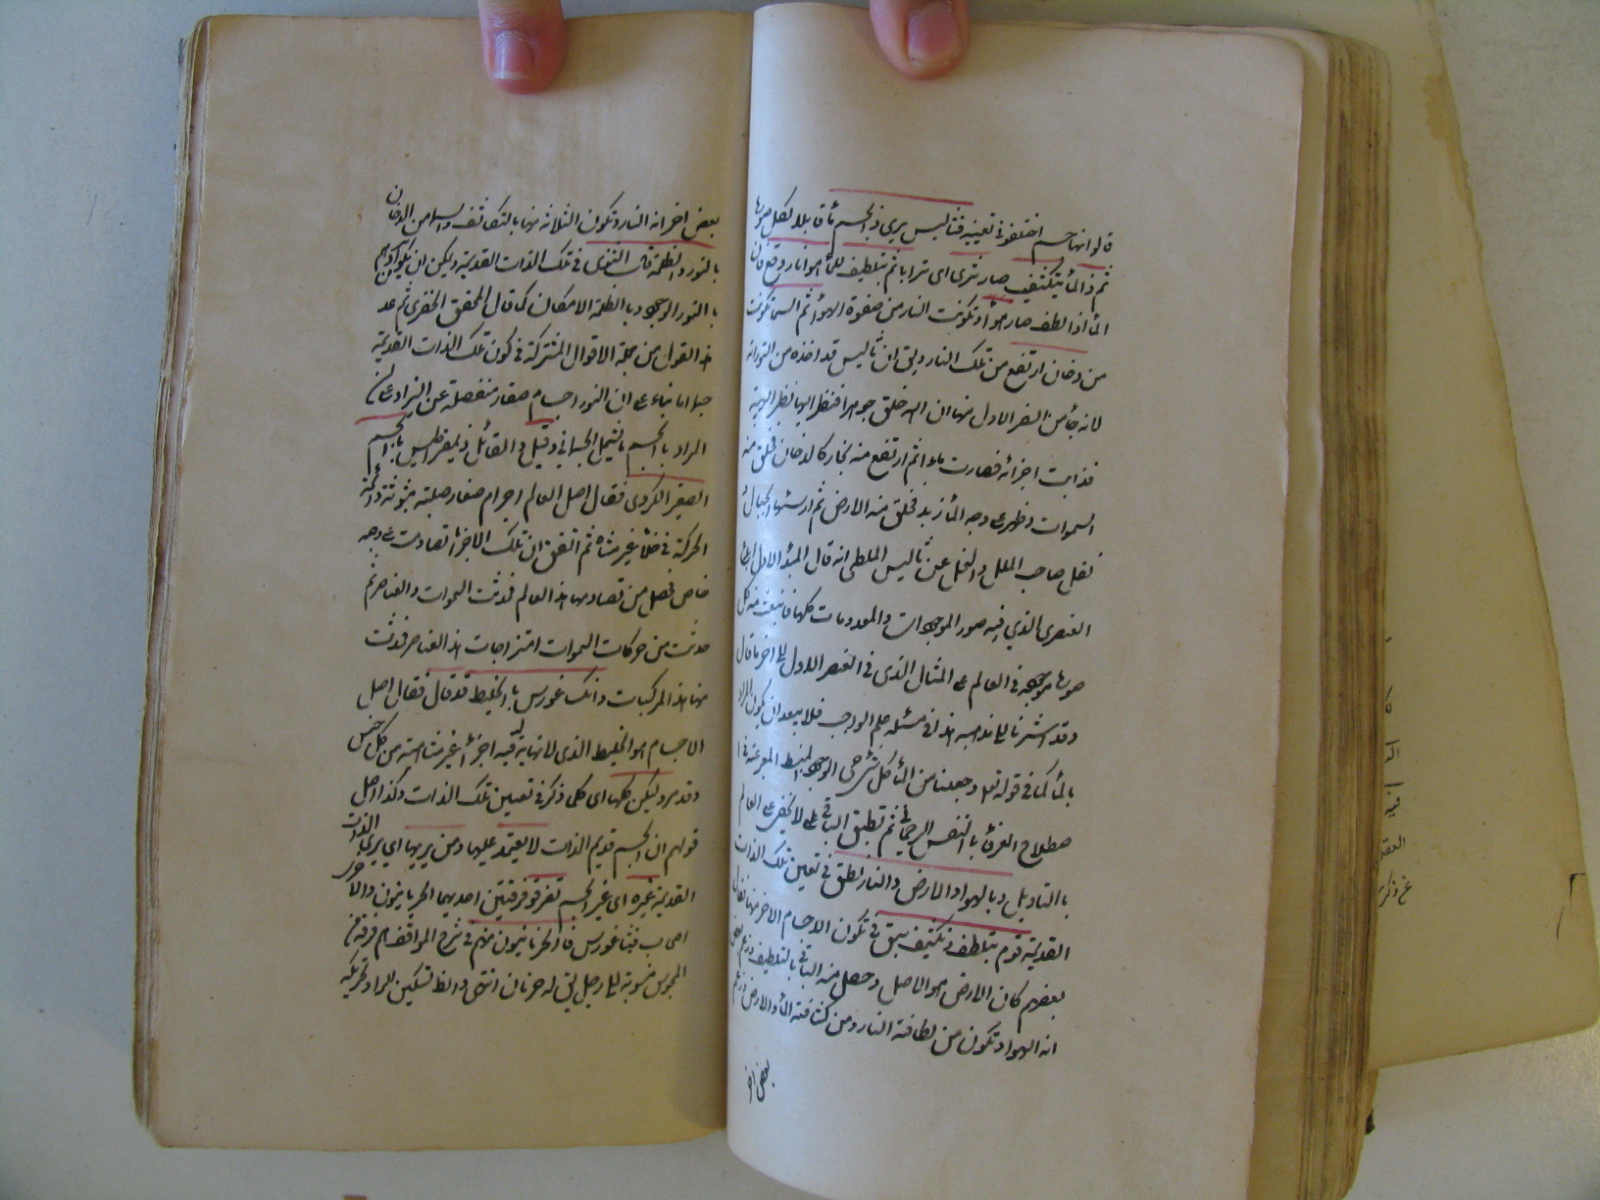 قالوا انها جسم اختلفوا في تعيينه فثاليس يرى ذا الجسم ماء قابلا لكل صورة
ثم ذا الماء بتكثيف صار ثرى اى ترابا ثم بتلطيف للماء هواء نار وقع فان
الماء اذا لطف صار هواء وتكونت النار من صفوة الهواء ثم السماء تكونت
من دخان ارتفع من تلك النار ويق ان ثاليس قد اخذه من التوراة
لانه جاء من السفر الاول منها ان الله خلق جوهرا فنظر اليها نظر الهيبة
فذابت اجزائه فصارت ماء ثم ارتفع منه بخار كالدخان فخلق منه
السموات وظهر على وجه الماء زبد فخلق منه الارض ثم ارسيها بالجبال و
نقل صاحب الملل والنحل عن ثاليس الملطى انه قال المبدأ الاول
العنصرى الذي فيه صور الموجودات والمعدومات كلها فانبعثت منه كل
صورة موجودة في العالم على المثال الذى في العنصر الاول الى اخر ما قال
وقد اشرنا الى مذهبه هذا في مسئلة علم الواجب فلا يبعد ان يكون المراد
بالماء كما في قوله تعالى وجعلنا من الماء كل شئ حي الوجود المنبسط المعبر عنه في ا
صطلاح العرفاء بالنفس الرحمانى ثم تطبيق الباقى على لا يخفى على العالم
بالتاويل وبالهواء والارض والنار نطق في تعيين تلك الذات
القديمة قوم بتلطف في تكثيف سبق في تكون الاجسام الاخر منها فقال
بعضهم كان الارض هو الاصل وحصل منه الباقى بالتلطيف وزعم بعض
انه الهواء وتكون من لطافته النار ومن كثافته الماء والارض وزعم
بعض اخر
بعض اخر انه النار وتكون الثلاثة منها بالتكاثف والسماء من الدخان
بالنور والظلمة قالت الثنوى في تلك الذات القديمة ويمكن ان يكون مرادهم
بالنور الوجود وبالظلمة الامكان كما قال المحقق الخفرى ثم عد
هذا القول من جملة الاقوال المشتركة في كون تلك الذات القديمة
جسما بناء على ان النور اجسام صغار منفصلة عن النير او على ان
المراد بالجسم ما يشمل الجسمانى وقيل و القائل ذيمقراطيس بالجسم
الصغير الكروى فقال اصل العالم اجرام صغار صلبة مبثوثة دائمة
الحركة في خلاء غير متناه ثم اتفق ان تلك الاجزاء تصادمت على وجه
خاص فحصل من تصادمها هذا العالم فحدثت السموات والعناصر ثم
حدثت من حركات السموات امتزاجات هذا العناصر فحدثت
منها هذا المركبات وانكساغورس بالخليط قد قال فقال اصل
الاجسام هو الخليط الذى لا نهاية له فيه اجزاء غير متناهية من كل جنس
وقد مر ولكن كلها اى كل ما ذكر في تعيين تلك الذات وكذا اصل
قولهم ان الجسم قديم الذات لا يعتمد عليها ومن يريها اي يرى الذات
القديمة غيره اى غير الجسم تفرقوا فرقتين احديهما الحرنانيون والاخرى
اصحاب فيثاغورس فالحرنانيون منهم في شرح المواقف هم فرقة من
المجوس منسوبة الى رجل يق له حرنان انتهى والظ تسكين الراء وتحريكه